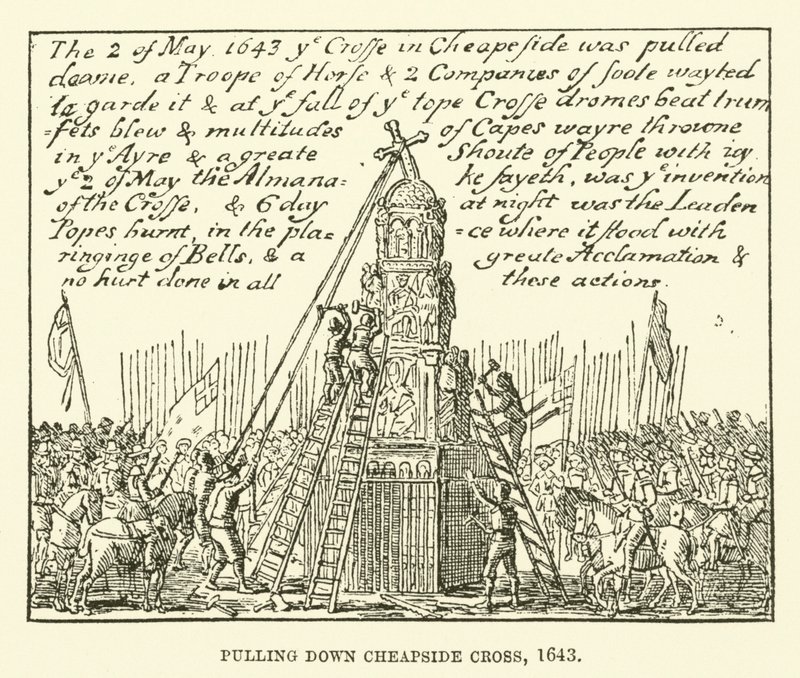 The 2 of May 1643 yᵉ Crosse in Cheapeside was pulled
downe, a Troope of Horse & 2 Companies of foote wayted
to garde it & at yᵉ fall of yᵉ tope Crosse dromes beat trum
=pets blew & multitudes of Capes wayre throwne
in yᵉ Ayre & a greate Shoute of People with ioy
yᵉ 2 of May the Almana= ke sayeth, was yᵉ invention
of the Crosse, & 6 day at night was the Leaden
Popes burnt, in the pla= =ce where it stood with
ringinge of Bells, & a greate Acclamation &
no hurt done in all these actions.
PULLING DOWN CHEAPSIDE CROSS, 1643.